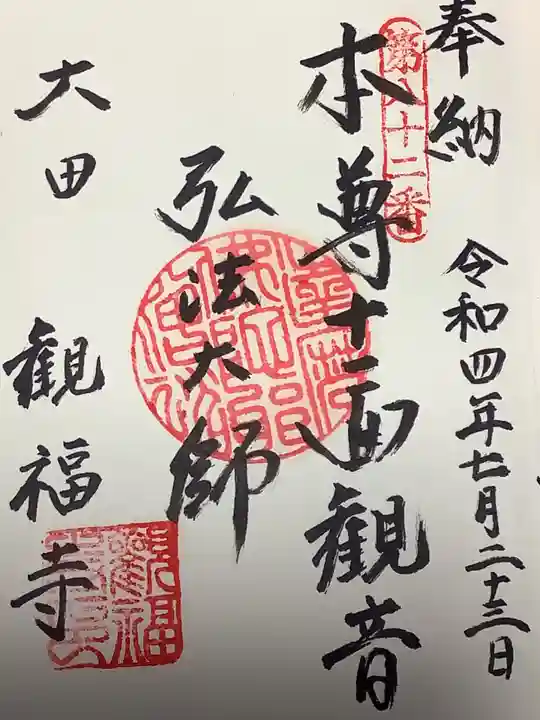 奉納
令和四年七月二十三日
第八十二番
本尊十一面観音
弘法大師
大田
観福寺